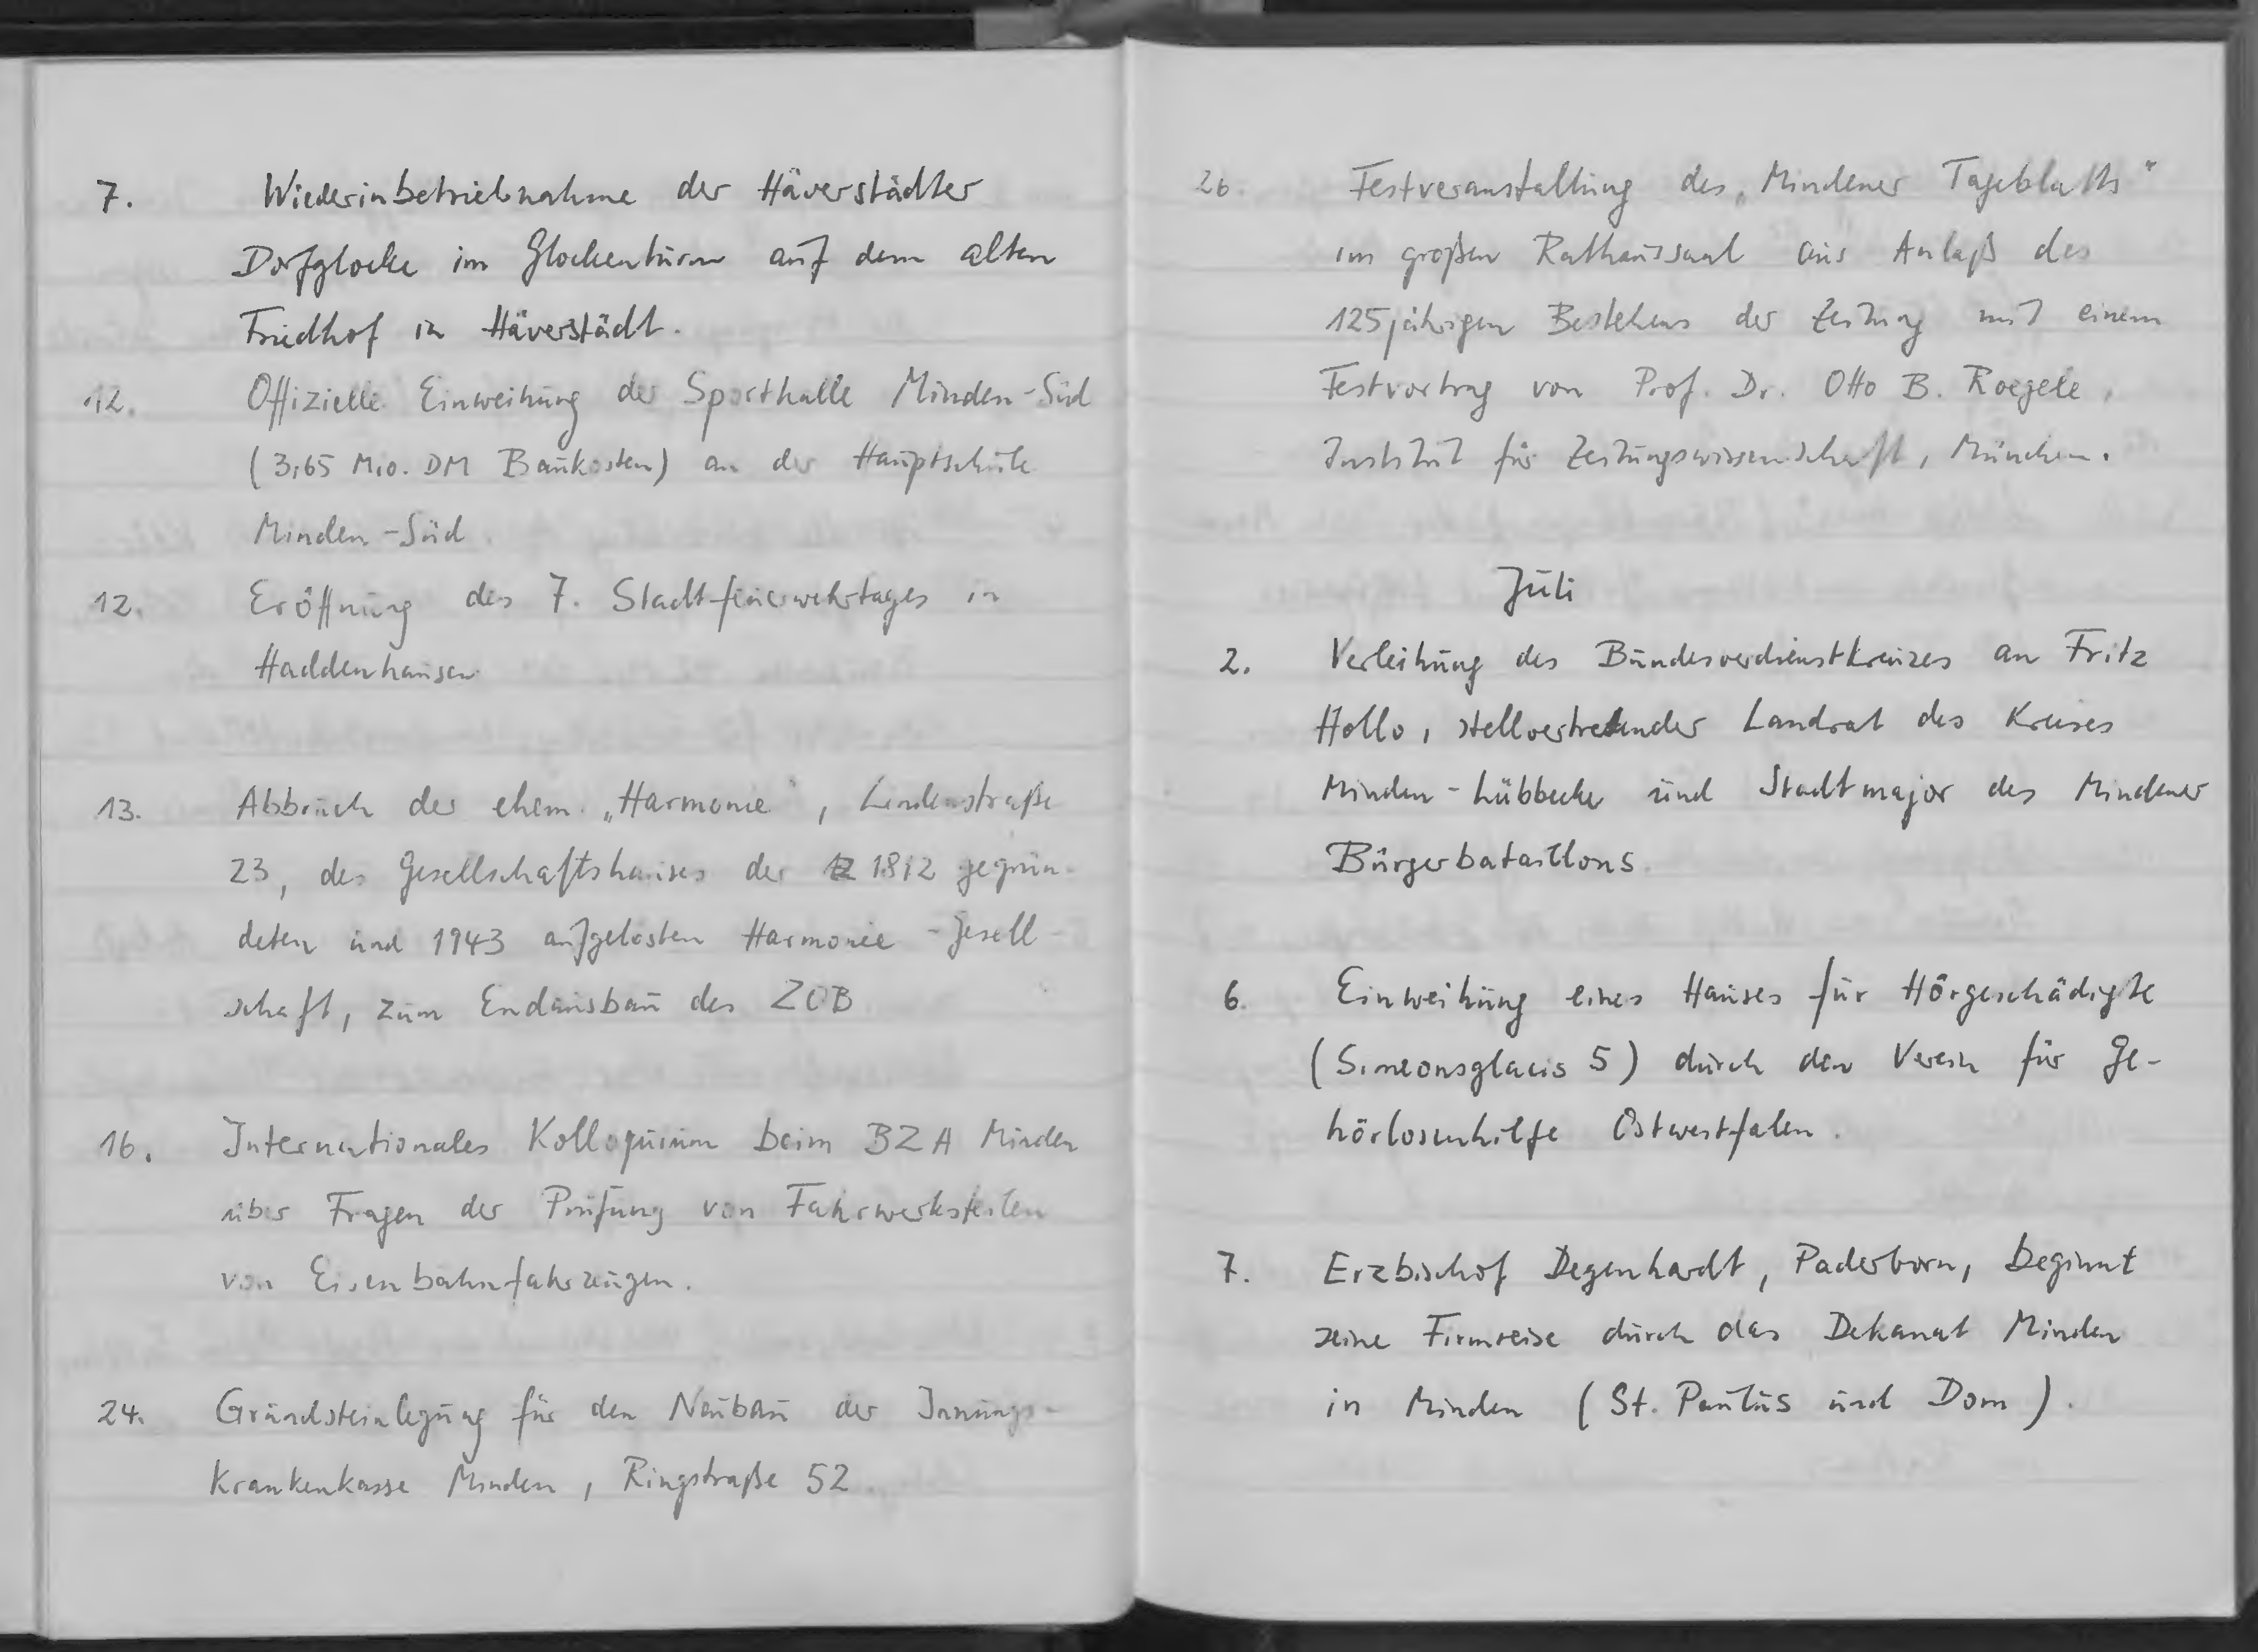 7. Wiederinbetriebnahme der Häverstädter
Dorfglocke im Glockenturm auf dem alten
Friedhof in Häverstädt.
12. Offizielle Einweihung der Sporthalle Minden-Süd
(3,65 Mio. DM Baukosten) an der Hauptschule
Minden-Süd.
12. Eröffnung des 7. Stadtfeuerwehrtages in
Haddenhausen
13. Abbruch der ehem. „Harmonie", Lindenstraße
23, des Gesellschaftshauses der 1812 gegrün-
deten und 1943 aufgelösten Harmonie-Gesell-
schaft, zum Endausbau des ZOB
16. Internationales Kolloquium beim BZA Minden
über Fragen der Prüfung von Fahrwerksteilen
von Eisenbahnfahrzeugen.
24. Grundsteinlegung für den Neubau der Innungs-
krankenkasse Minden, Ringstraße 52.
26. Festveranstaltung des „Mindener Tageblatts"
im großen Rathaussaal aus Anlaß des
125jährigen Bestehens der Zeitung mit einem
Festvortrag von Prof. Dr. Otto B. Roegele,
Institut für Zeitungswissenschaft, München.
Juli
2. Verleihung des Bundesverdienstkreuzes an Fritz
Hollo, stellvertretender Landrat des Kreises
Minden-Lübbecke und Stadtmajor des Mindener
Bürgerbataillons.
6. Einweihung eines Hauses für Hörgeschädigte
(Simeonsglacis 5) durch den Verein für Ge-
hörlosenhilfe Ostwestfalen.
7. Erzbischof Degenhardt, Paderborn, beginnt
seine Firmreise durch das Dekanat Minden
in Minden (St. Paulus und Dom).